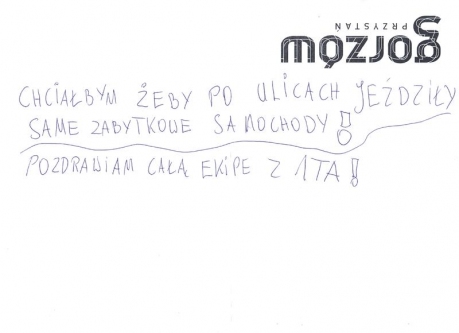 PRZYSTAŃ
GORZÓW
CHCIAŁBYM ŻEBY PO ULICACH JEŹDZIŁY
SAME ZABYTKOWE SAMOCHODY!
POZDRAWIAM CAŁĄ EKIPE Z 1TA!